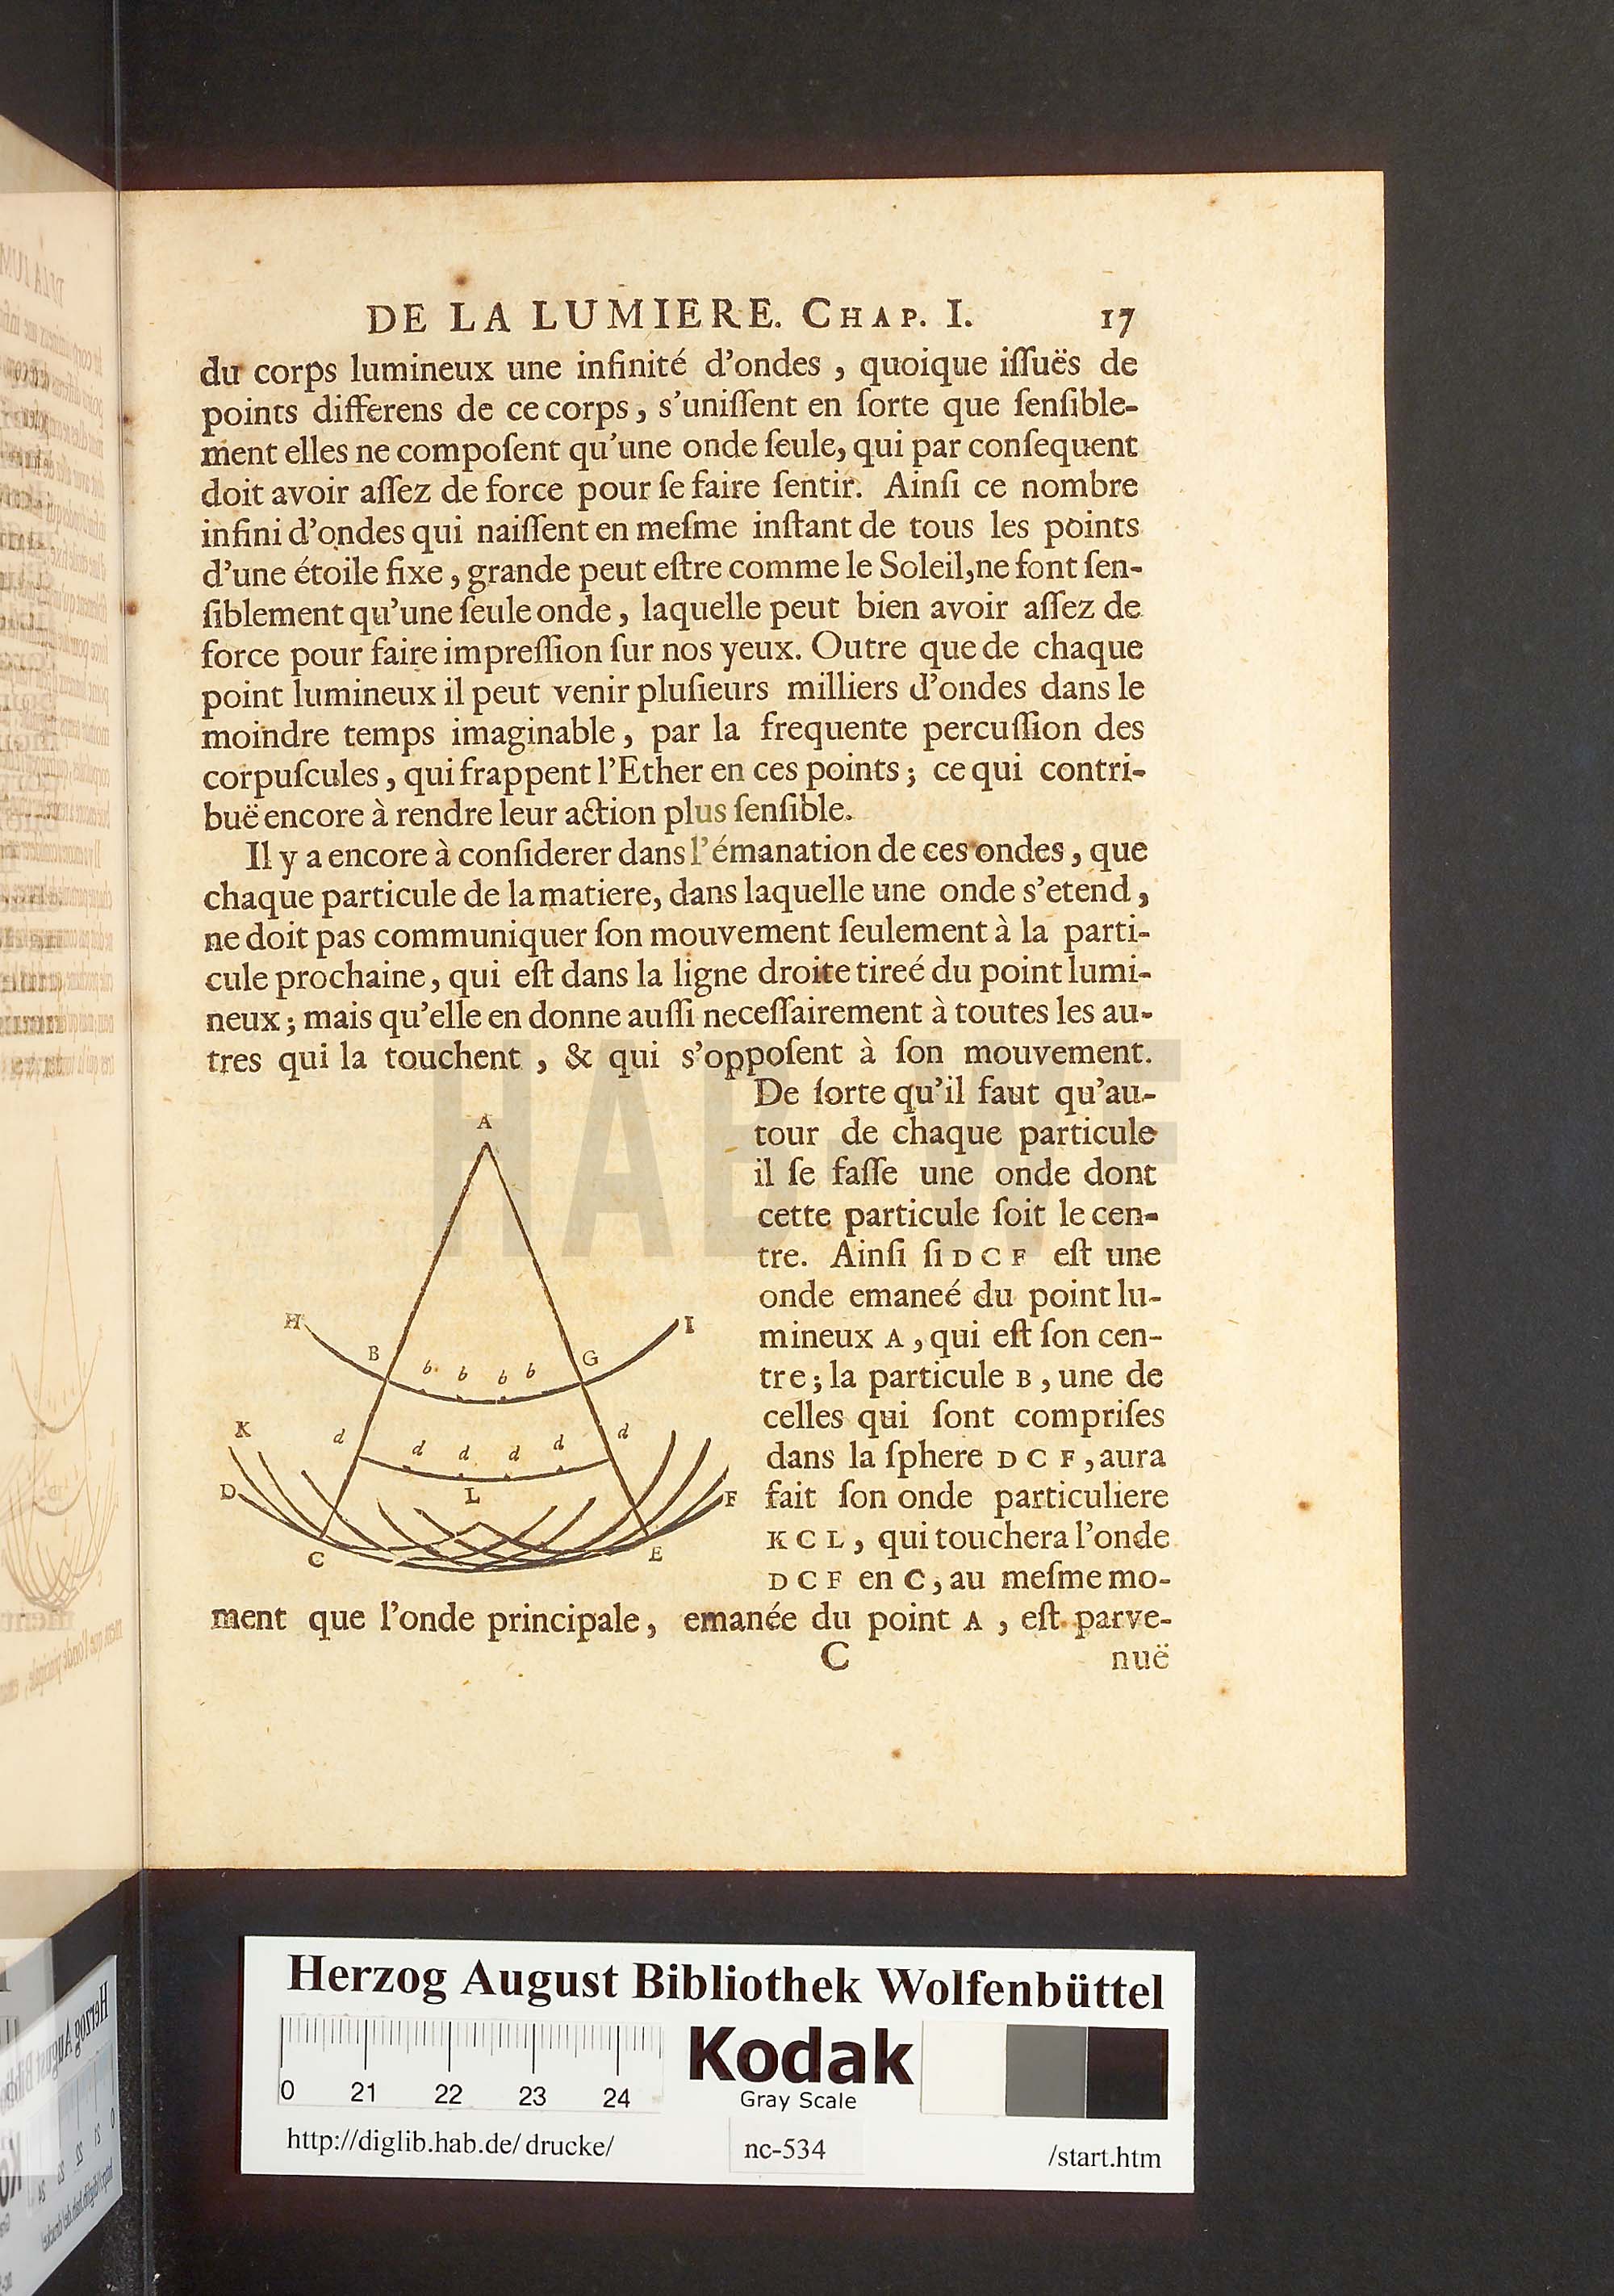 DE LA LUMIERE. CHAP. I. 17
du corps lumineux une infinité d'ondes , quoique iſſuës de
points differens de ce corps, s'uniſſent en ſorte que ſenſible-
ment elles ne compoſent qu'une onde ſeule, qui par conſequent
doit avoir aſſez de force pour ſe faire ſentir. Ainſi ce nombre
infini d'ondes qui naiſſent en meſme inſtant de tous les points
d'une étoile fixe, grande peut eſtre comme le Soleil, ne font ſen-
ſiblement qu'une ſeule onde, laquelle peut bien avoir aſſez de
force pour faire impreſſion ſur nos yeux. Outre que de chaque
point lumineux il peut venir pluſieurs milliers d'ondes dans le
moindre temps imaginable, par la frequente percuſſion des
corpuſcules, qui frappent l'Ether en ces points; ce qui contri-
buë encore à rendre leur action plus ſenſible.
Il y a encore à conſiderer dans l'émanation de ces ondes, que
chaque particule de la matiere, dans laquelle une onde s'etend,
ne doit pas communiquer ſon mouvement ſeulement à la parti-
cule prochaine, qui eſt dans la ligne droite tireé du point lumi-
neux; mais qu'elle en donne auſſi neceſſairement à toutes les au-
tres qui la touchent, & qui s'oppoſent à ſon mouvement.
De ſorte qu'il faut qu'au-
tour de chaque particule
il ſe faſſe une onde dont
cette particule ſoit le cen-
tre. Ainſi ſi D C F eſt une
onde emaneé du point lu-
mineux A, qui eſt ſon cen-
tre; la particule B, une de
celles qui ſont compriſes
dans la ſphere D C F, aura
fait ſon onde particuliere
K C L, qui touchera l'onde
D C F en C, au meſme mo-
ment que l'onde principale, emanée du point A, eſt parve-
C nuë
A
H I
B b b b b G
K d d d d d d
D L F
C E
HAB WF
Herzog August Bibliothek Wolfenbüttel
0 21 22 23 24
Kodak
Gray Scale
http://diglib.hab.de/drucke/ nc-534 /start.htm